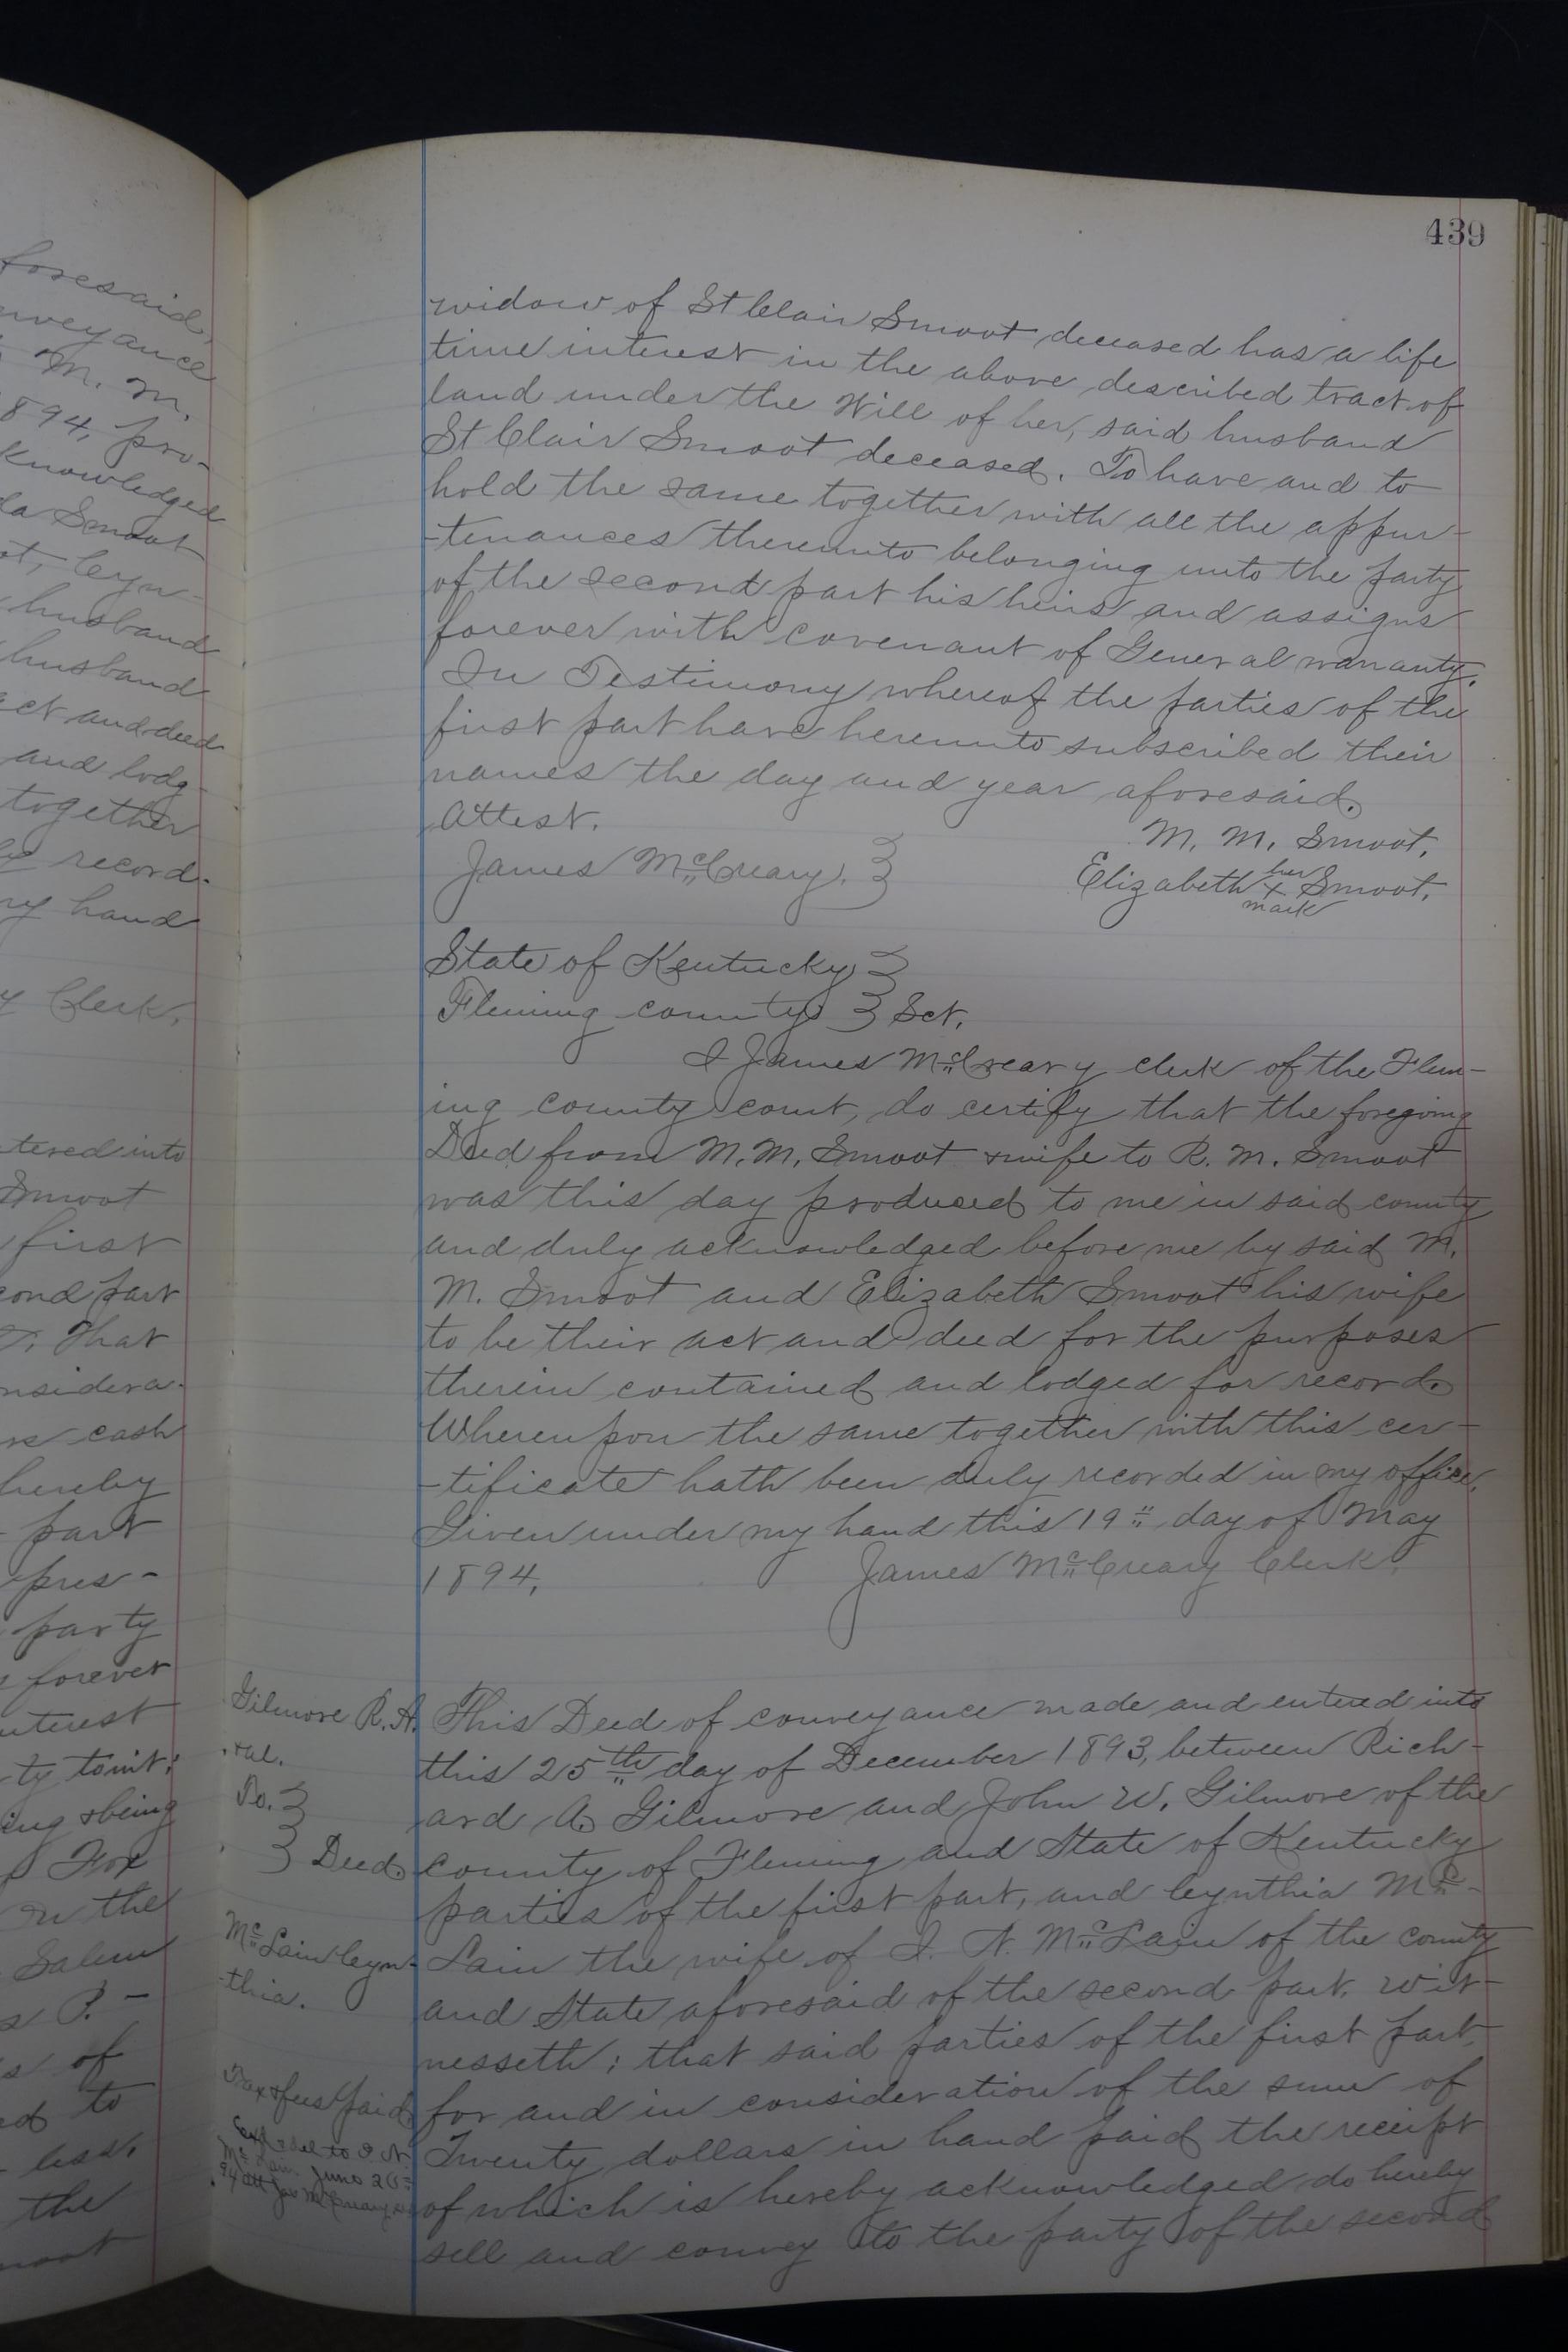 foresaid,
nveyance
M. M.
894, pro-
knowledged
da Smoot
ot, Cyn-
husband
husband
act and deed
and lodg-
together
record.
my hand
y Clerk.
tered into
Smoot
first
cond part
That
nsidera-
cash
hereby
part
pres-
party
forever
nterest
ty towit:
ing & being
Fox
in the
Salem
P. -
s of
to
less.
the
moot
439
widow of St Clair Smoot deceased has a life
time interest in the above described tract of
land under the Will of her, said husband
St Clair Smoot deceased. To have and to
hold the same together with all the appur-
-tenances thereunto belonging unto the party
of the second part his heirs and assigns
forever with covenant of General warranty.
In Testimony whereof the parties of the
first part have hereunto subscribed their
names the day and year aforesaid.
Attest.
M. M. Smoot.
James McCreary.
Elizabeth her x mark Smoot.
State of Kentucky }
Fleming county } Sct.
I James McCreary clerk of the Flem-
ing county court, do certify that the foregoing
Deed from M. M. Smoot & wife to R. M. Smoot
was this day produced to me in said county
and duly acknowledged before me by said M.
M. Smoot and Elizabeth Smoot his wife
to be their act and deed for the purposes
therein contained and lodged for record.
Whereupon the same together with this cer-
-tificate hath been duly recorded in my office.
Given under my hand this 19" day of May
1894. James McCreary Clerk.
Gilmore R. A.
&al.
To. }
} Deed.
McLain Cyn-
thia.
Tax & fees paid
to I. N.
June 20
This Deed of conveyance made and entered into
this 25th day of December 1893, between Rich-
ard A. Gilmore and John W. Gilmore of the
county of Fleming and State of Kentucky
parties of the first part, and Cynthia Mc-
Lain the wife of I. N. McLain of the county
and State aforesaid of the second part. Wit-
nesseth; that said parties of the first part,
for and in consideration of the sum of
Twenty dollars in hand paid the receipt
of which is hereby acknowledged do hereby
sell and convey to the party of the second